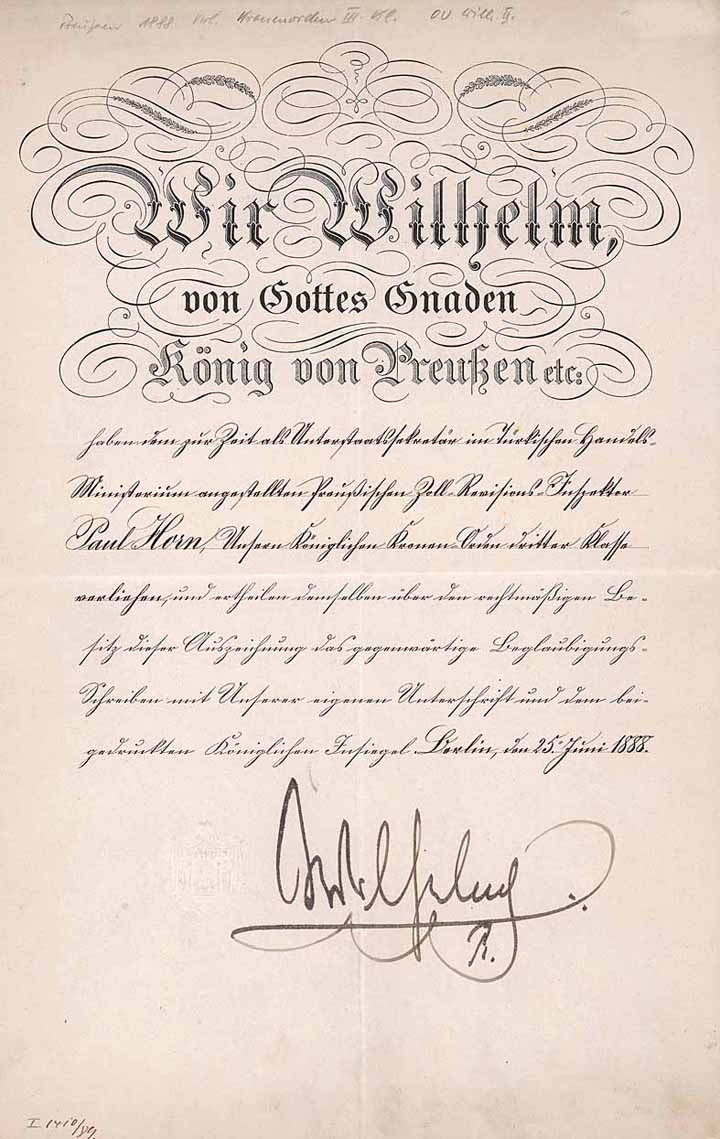 Preußen 1888 Verl. Kronenorden III. Kl. OU Wilh. II.
Wir Wilhelm,
von Gottes Gnaden
König von Preußen etc:
haben dem zur Zeit als Unterstaatssekretär im Türkischen Handels-
Ministerium angestellten Preußischen Zoll-Revisions-Inspektor
Paul Horn, Unsern Königlichen Kronen-Orden dritter Klasse
verliehen, und ertheilen demselben über den rechtmäßigen Be-
sitz dieser Auszeichnung das gegenwärtige Beglaubigungs-
Schreiben mit Unserer eigenen Unterschrift und dem bei-
gedruckten Königlichen Insiegel. Berlin, den 25. Juni 1888.
Wilhelm
R.
I 1410/89